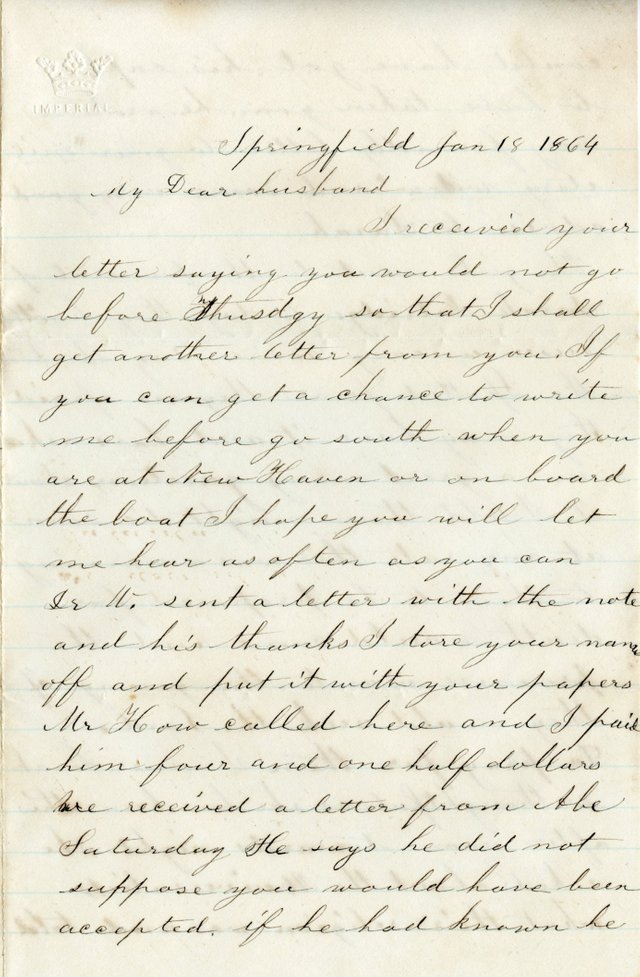 IMPERIAL
Springfield Jan 18 1864
My Dear husband
I received your
letter saying you would not go
before Thusdgy so that I shall
get another letter from you. If
you can get a chance to write
me before go south when you
are at New Haven or on board
the boat I hope you will let
me hear as often as you can
W. sent a letter with the note
and his thanks I tore your name
off and put it with your papers
Mr How called here and I paid
him four and one half dollars
We received a letter from Abe
Saturday He says he did not
suppose you would have been
accepted. if he had known he